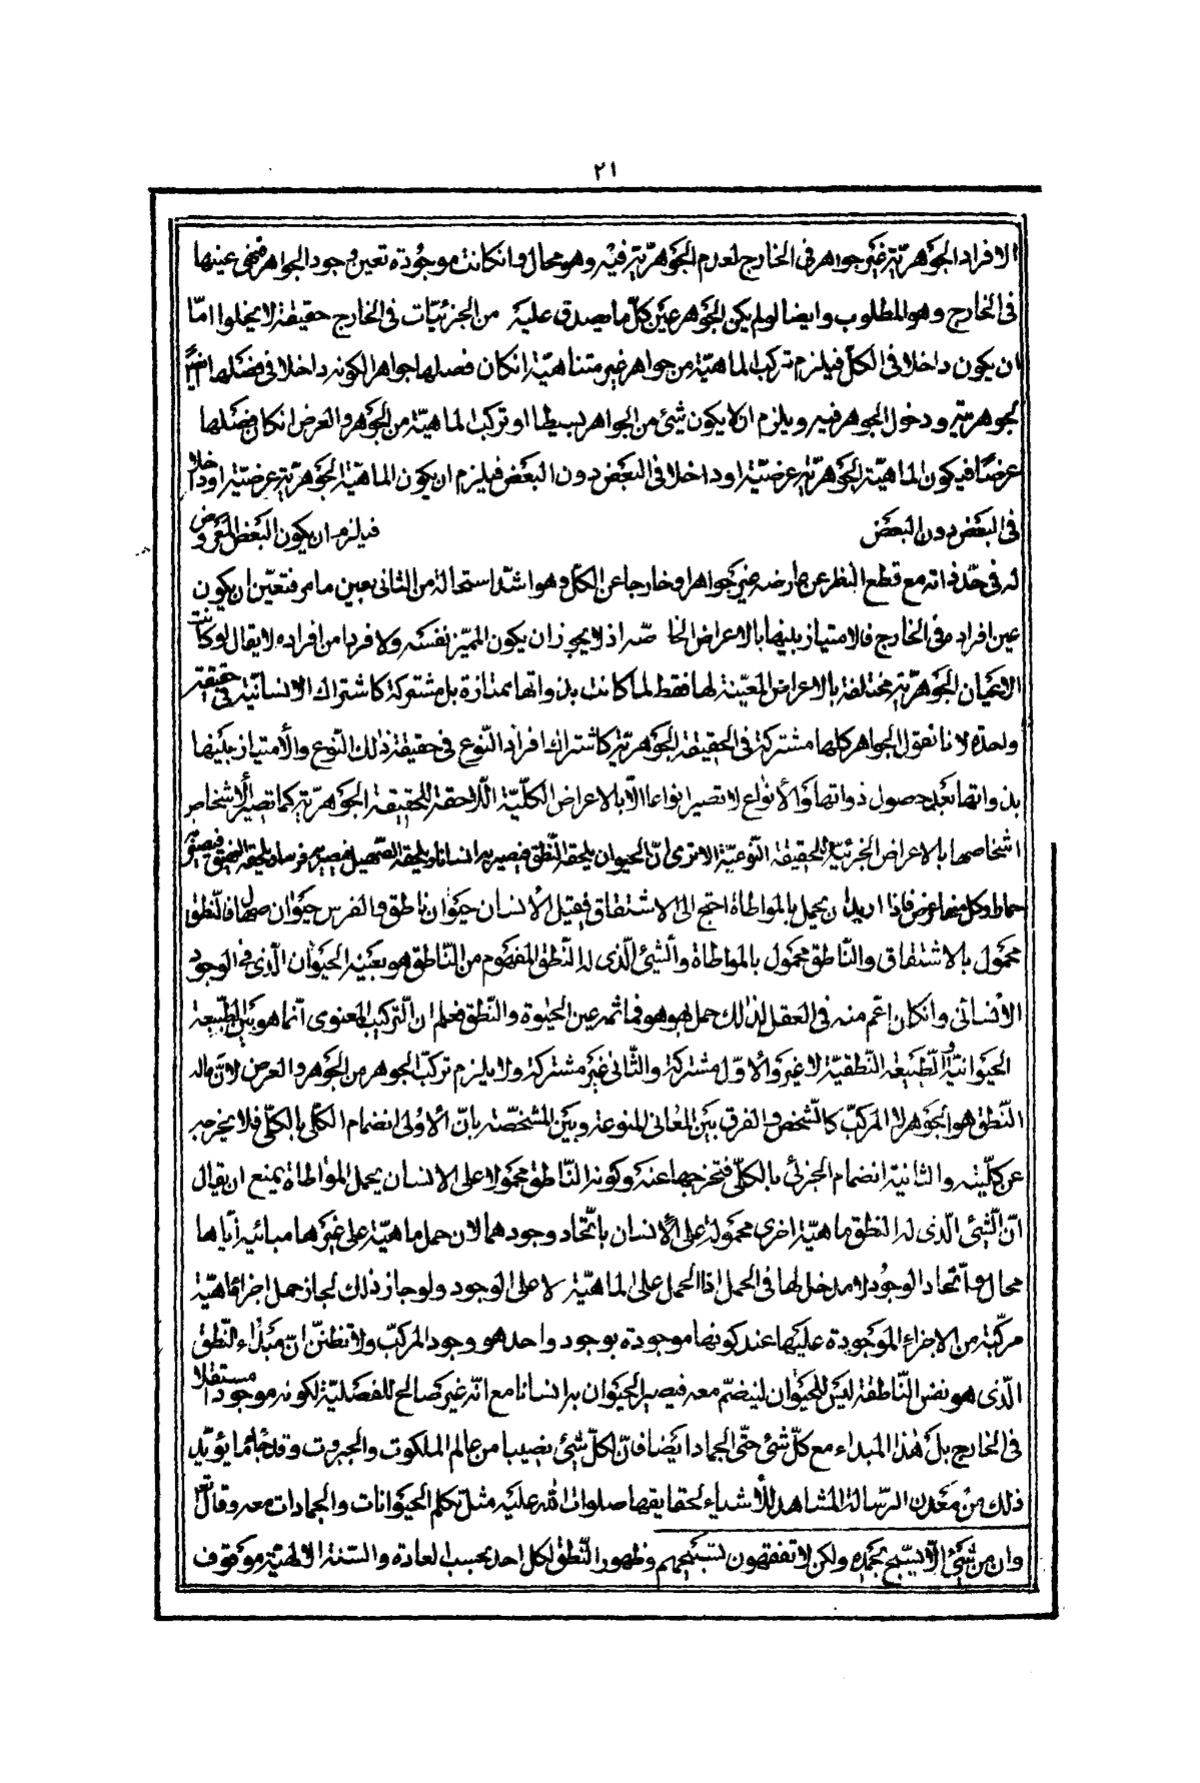 ٢١
الافراد الجوهرية غير جواهر فى الخارج لعدم الجوهرية فيه وهو محال وانكانت موجودة تعين وجود الجواهر فهى عينها
فى الخارج وهو المطلوب وايضا لولم يكن الجوهر عين كلّ ما يصدق عليه من الجزئيّات فى الخارج حقيقة لا يخلوا امّا
ان يكون داخلا فى الكلّ فيلزم تركب الماهيّة من جواهر غير متناهيّة انكان فصلها جواهر الكونه داخلا فى فصلها ايضًا
لجوهريته ودخول الجوهر فيه ويلزم ان لا يكون شئ من الجواهر بسيطا او تركب الماهيّة من الجوهر والعرض انكان فصلها
عرضًا فيكون الماهيّة الجوهريّة عرضيّة او داخلا فى البعض دون البعض فيلزم ان يكون الماهيّة الجوهريّة عرضيّة او داخلا
فى البعض دون البعض فيلزم ان يكون البعض المعروض
له فى حّد ذاته مع قطع النظر عن عارضه غير جواهر او خارجا عن الكلّ وهو اشدّ استحالة من الثانى بعين ما مر فتعيّن ان يكون
عين افراده فى الخارج فالامتياز بينها بالاعراض الخاصّه اذ لا يجوز ان يكون المميّز نفسه ولا فردا من افراده لا يقال لو كانت
الاعيان الجوهريّة مختلفة بالاعراض المعيّنة لها فقط لما كانت بذواتها ممتازة بل مشتركة كاشتراك الانسانيّة فى حقيقة
واحدة لانا نقول الجواهر كلها مشتركة فى الحقيقة الجوهريّة كاشتراك افراد النّوع فى حقيقة ذلك النّوع والأمتياز بينها
بذواتها بعد حصول ذواتها والأنواع لا تصير انواعا الّا بالاعراض الكلّيّة اللّاحقة للحقيقة الجوهريّة كما تصير الأشخاص
اشخاصها بالاعراض الجزئية للحقيقة النّوعيّة الا ترى انّ الحيوان يلحقه النّطق فيصير به انسانا ويلحقه الصّهيل فيصير به فرسا ويلحقه النهيق فيصير به
حمارا وكل منها عرض فاذا اريد ان يحمل بالمواطاة احتج الى الاشتقاق فقيل الأنسان حيوان ناطق والفرس حيوان صهال فالنّطق
محمول بالاشتقاق والنّاطق محمول بالمواطاة والشّئ الّذى له النّطق المفهوم من النّاطق هو بعينه الحيوان الّذى فى الوجود
الأنسانى وانكان اعّم منه فى العقل لذلك حمل هو هو فما ثمه عين الحيوة والنّطق فعلم ان التّركيب المعنوى انّما هو بين الطّبيعة
الحيوانيّة والطّبيعة النّطقيّة لا غير والأوّل مشتركة والثّانى غير مشتركة ولا يلزم تركّب الجوهر من الجوهر والعرض لانّ ماله
النّطق هو الجوهر لا المركّب كالشّخص والفرق بين المعانى المنوعة وبين المشخّصة بانّ الأولى انضمام الكلّى بالكلّى فلا يخرجه
عن كلّيته والثانية انضمام الجزئى بالكلّى فتخرجها عنه وكونه النّاطق محمولا على الانسان بحمل المواطاة يمنع ان يقال
انّ الشّئ الّذى له النطق ماهيّة اخرى محمولة على الأنسان باتّحاد وجودهما لان حمل ماهيّة على غيرها مبائنه ايّاها
محال واتّحاد الوجود لا مدخل لها فى الحمل اذ الحمل على الماهيّة لا على الوجود ولو جاز ذلك لجاز حمل اجزاء ماهيّة
مركّبة من الاجزاء الموجودة عليها عند كونها موجودة بوجود واحد هو وجود المركّب ولا تظنّن انّ مبداء النّطق
الّذى هو نفس النّاطقة ليس للحيوان لينضمّ معه فيصير الحيوان به انسانا مع انّه غير صالح للفصليّة لكونه موجودا مستقلا
فى الخارج بل هذا المبداء مع كلّ شئ حتّى الجماد ايضا فانّ لكلّ شئ نصيبا من عالم الملكوت والجبروت وقد جاء ما يؤيّد
ذلك من معدن الرّسالة المشاهد للأشياء لحقايقها صلوات الله عليه مثل تكلّم الحيوانات والجمادات معه وقال تع
وان من شئ الّا يسّبح بحمده ولكن لا تفقهون تسبيحهم وظهور النّطق لكل احد بحسب العادة والسّنة الالهيّة موقوف